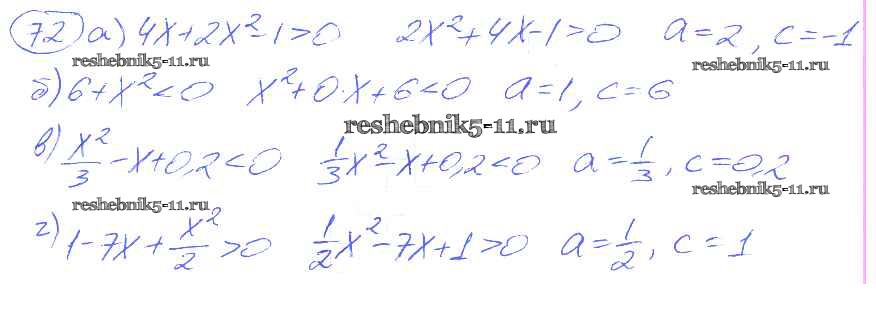 72 а) 4x+2x²-1>0 2x²+4x-1>0 a=2, c=-1
reshebnik5-11.ru reshebnik5-11.ru
б) 6+x²<0 x²+0·x+6<0 a=1, c=6
reshebnik5-11.ru
в) x²/3-x+0,2<0 1/3x²-x+0,2<0 a=1/3, c=0,2
reshebnik5-11.ru reshebnik5-11.ru
г) 1-7x+x²/2>0 1/2x²-7x+1>0 a=1/2, c=1